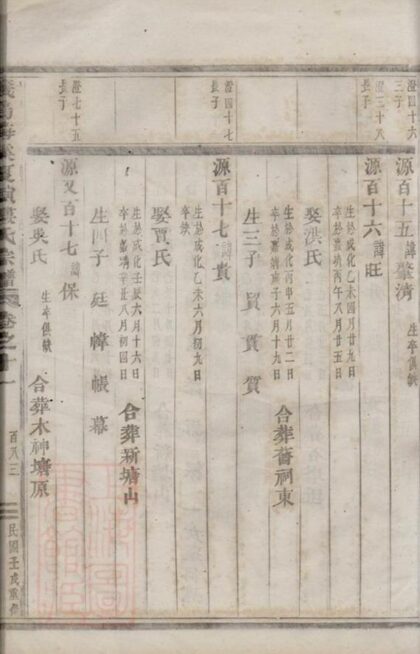 澄四十六
三子
源百十五 諱肇濟 生卒俱缺
澄三十八
長子
源百十六 諱旺
生於成化乙未四月廿九日
卒於嘉靖丙午八月廿五日
娶洪氏
生於成化丙申五月廿二日
卒於嘉靖庚子六月十九日
合葬舊祠東
生三子
澄四十七
長子
源百十七 諱貴
生於成化乙未六月初九日
卒缺
娶賈氏
生於成化壬辰六月十六日
卒於嘉靖辛丑八月初四日
合葬新塘山
生四子 廷 幃 帳 幕
澄七十五
長子
源又百十七 諱保
娶吳氏 生卒俱缺 合葬木神塘原
氏宗譜 卷之十一 百八三 民國壬戌重修